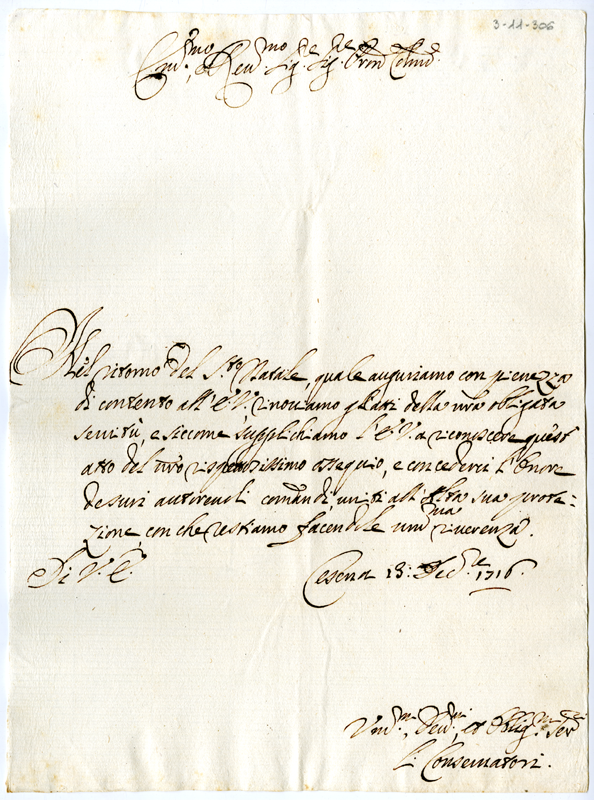 3-11-306
Em.mo, e Rev.mo Sig.re Sig.re P'ron Colmo
Nel ritorno del S.to Natale, quale auguriamo con pienezza
di contento all'E.V. rinoviamo gl'atti della nr̃a obligata
servitù, e siccome supplichiamo l'E.V. a riconoscere quest'
atto del nr̃o rispettosissimo ossequio, e concederci l'onore
de suoi autorevoli comandi, uniti all'Alta sua prote-
zione con che restiamo facendole um.ma riverenza.
Di V. E.
Cesena 23: Dec.e 1716.
Um.mi, Dev.mi, et Oblig.mi Ser.
Li Conservatori.